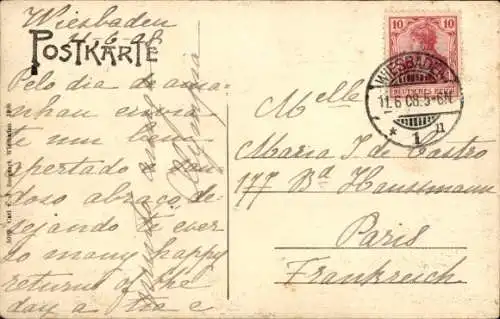 Wiesbaden
11-6-08
POSTKARTE
Pelo dia de ama-
nhan envia-
te um bem
apertado sau-
doso abraço, de-
sejando te ever
so many happy
returns of the
day a tia e
Olympia
10
10
DEUTSCHES REICH
WIESBADEN
11.6.08.5-6N.
* 1 n
Melle
Maria I. de Castro
177 Bd Haussmann
Paris
Frankreich